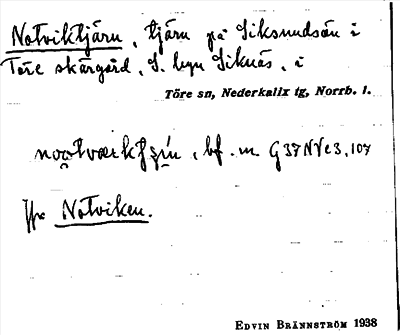 Notviktjärn, tjärn på Siksundsön i
Töre skärgård, S. byn Siknäs, i
Töre sn, Nederkalix tg, Norrb. l.
bf. m. G37NVe3,107
Jfr Notviken.
EDVIN BRÄNNSTRÖM 1938